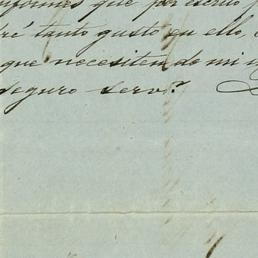 que por escrito
tanto gusto en ello,
que necesiten de mi
seguro serv.r